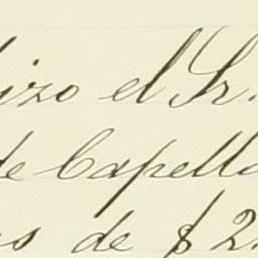 hizo el Sr.
de Capella
os de $ 2